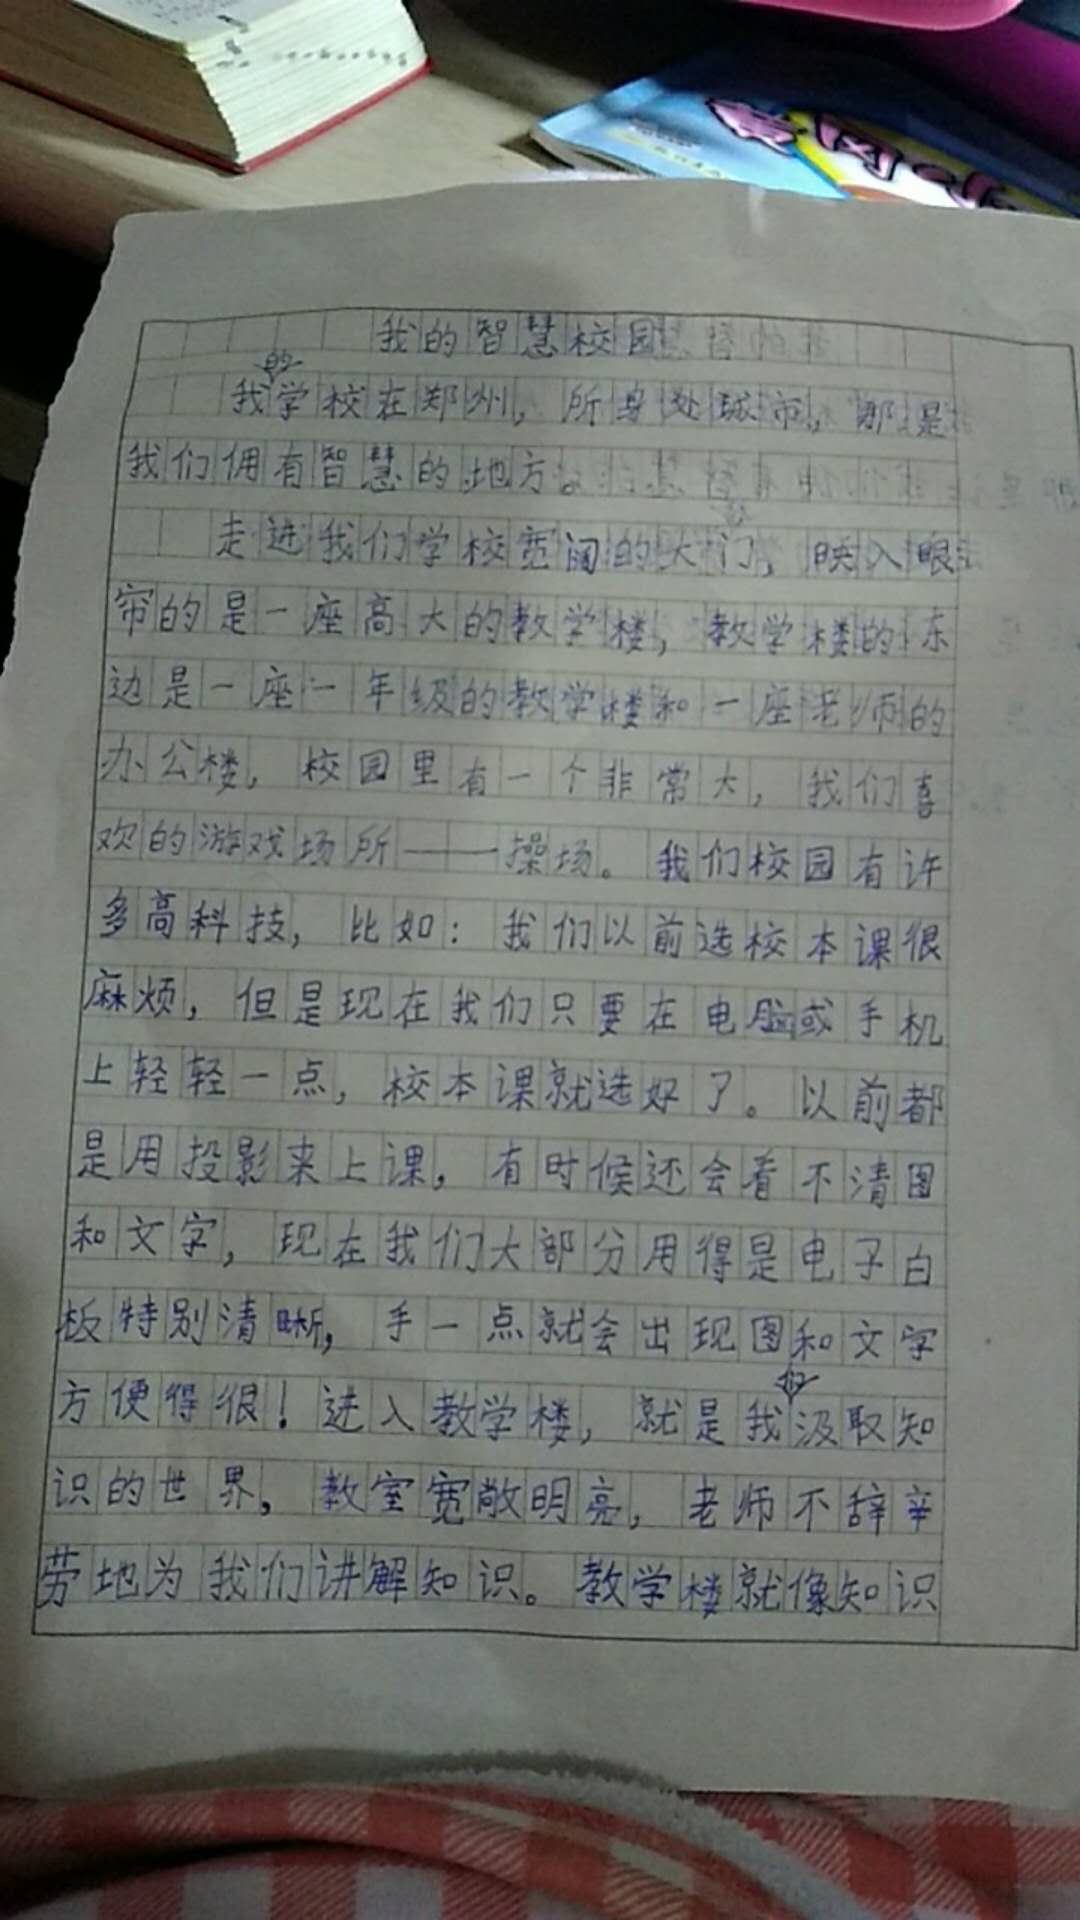 我的智慧校园
我的学校在郑州，所身处城市，那是
我们佣有智慧的地方。
走进我们学校宽阔的大门，映入眼
帘的是一座高大的教学楼，教学楼的东
边是一座一年级的教学楼和一座老师的
办公楼，校园里有一个非常大，我们喜
欢的游戏场所——操场。我们校园有许
多高科技，比如：我们以前选校本课很
麻烦，但是现在我们只要在电脑或手机
上轻轻一点，校本课就选好了。以前都
是用投影来上课，有时候还会看不清图
和文字，现在我们大部分用得是电子白
板特别清晰，手一点就会出现图和文字
方便得很！进入教学楼，就是我们汲取知
识的世界，教室宽敞明亮，老师不辞辛
劳地为我们讲解知识。教学楼就像知识